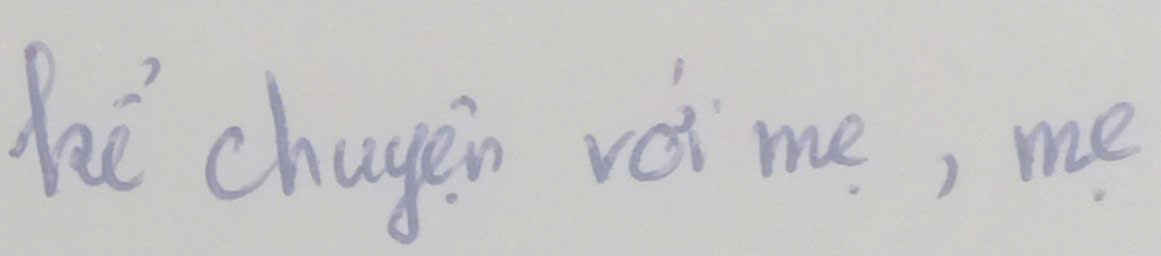 kể chuyện với mẹ, mẹ